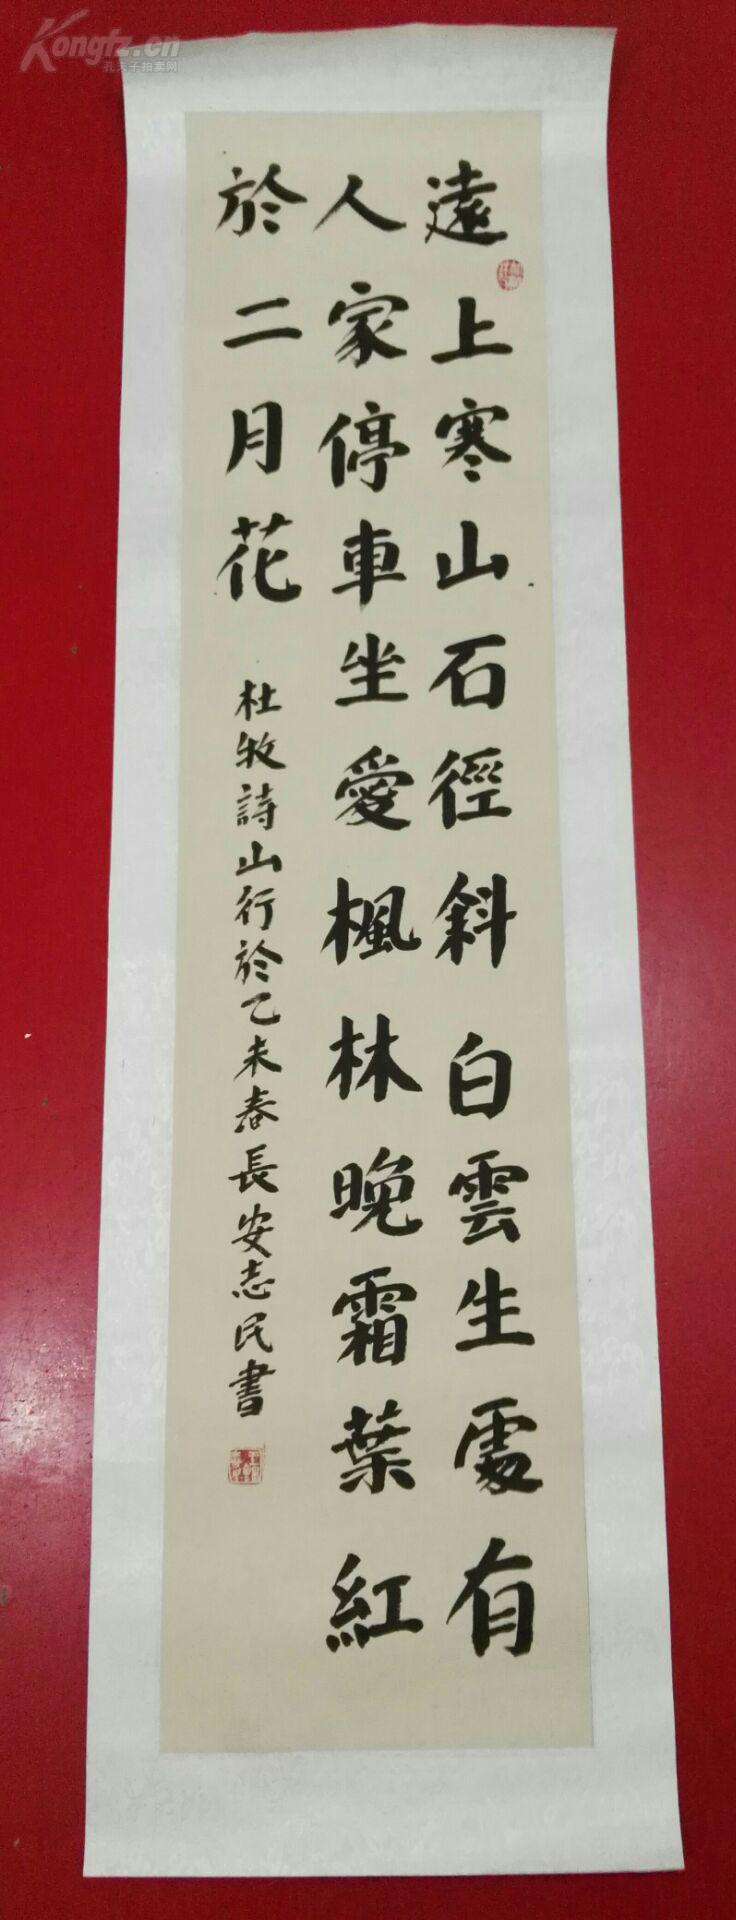 遠上寒山石徑斜白雲生處有
人家停車坐愛楓林晚霜葉紅
於二月花
杜牧詩山行於乙未春長安志民書
Kongfz.cn
孔夫子拍卖网